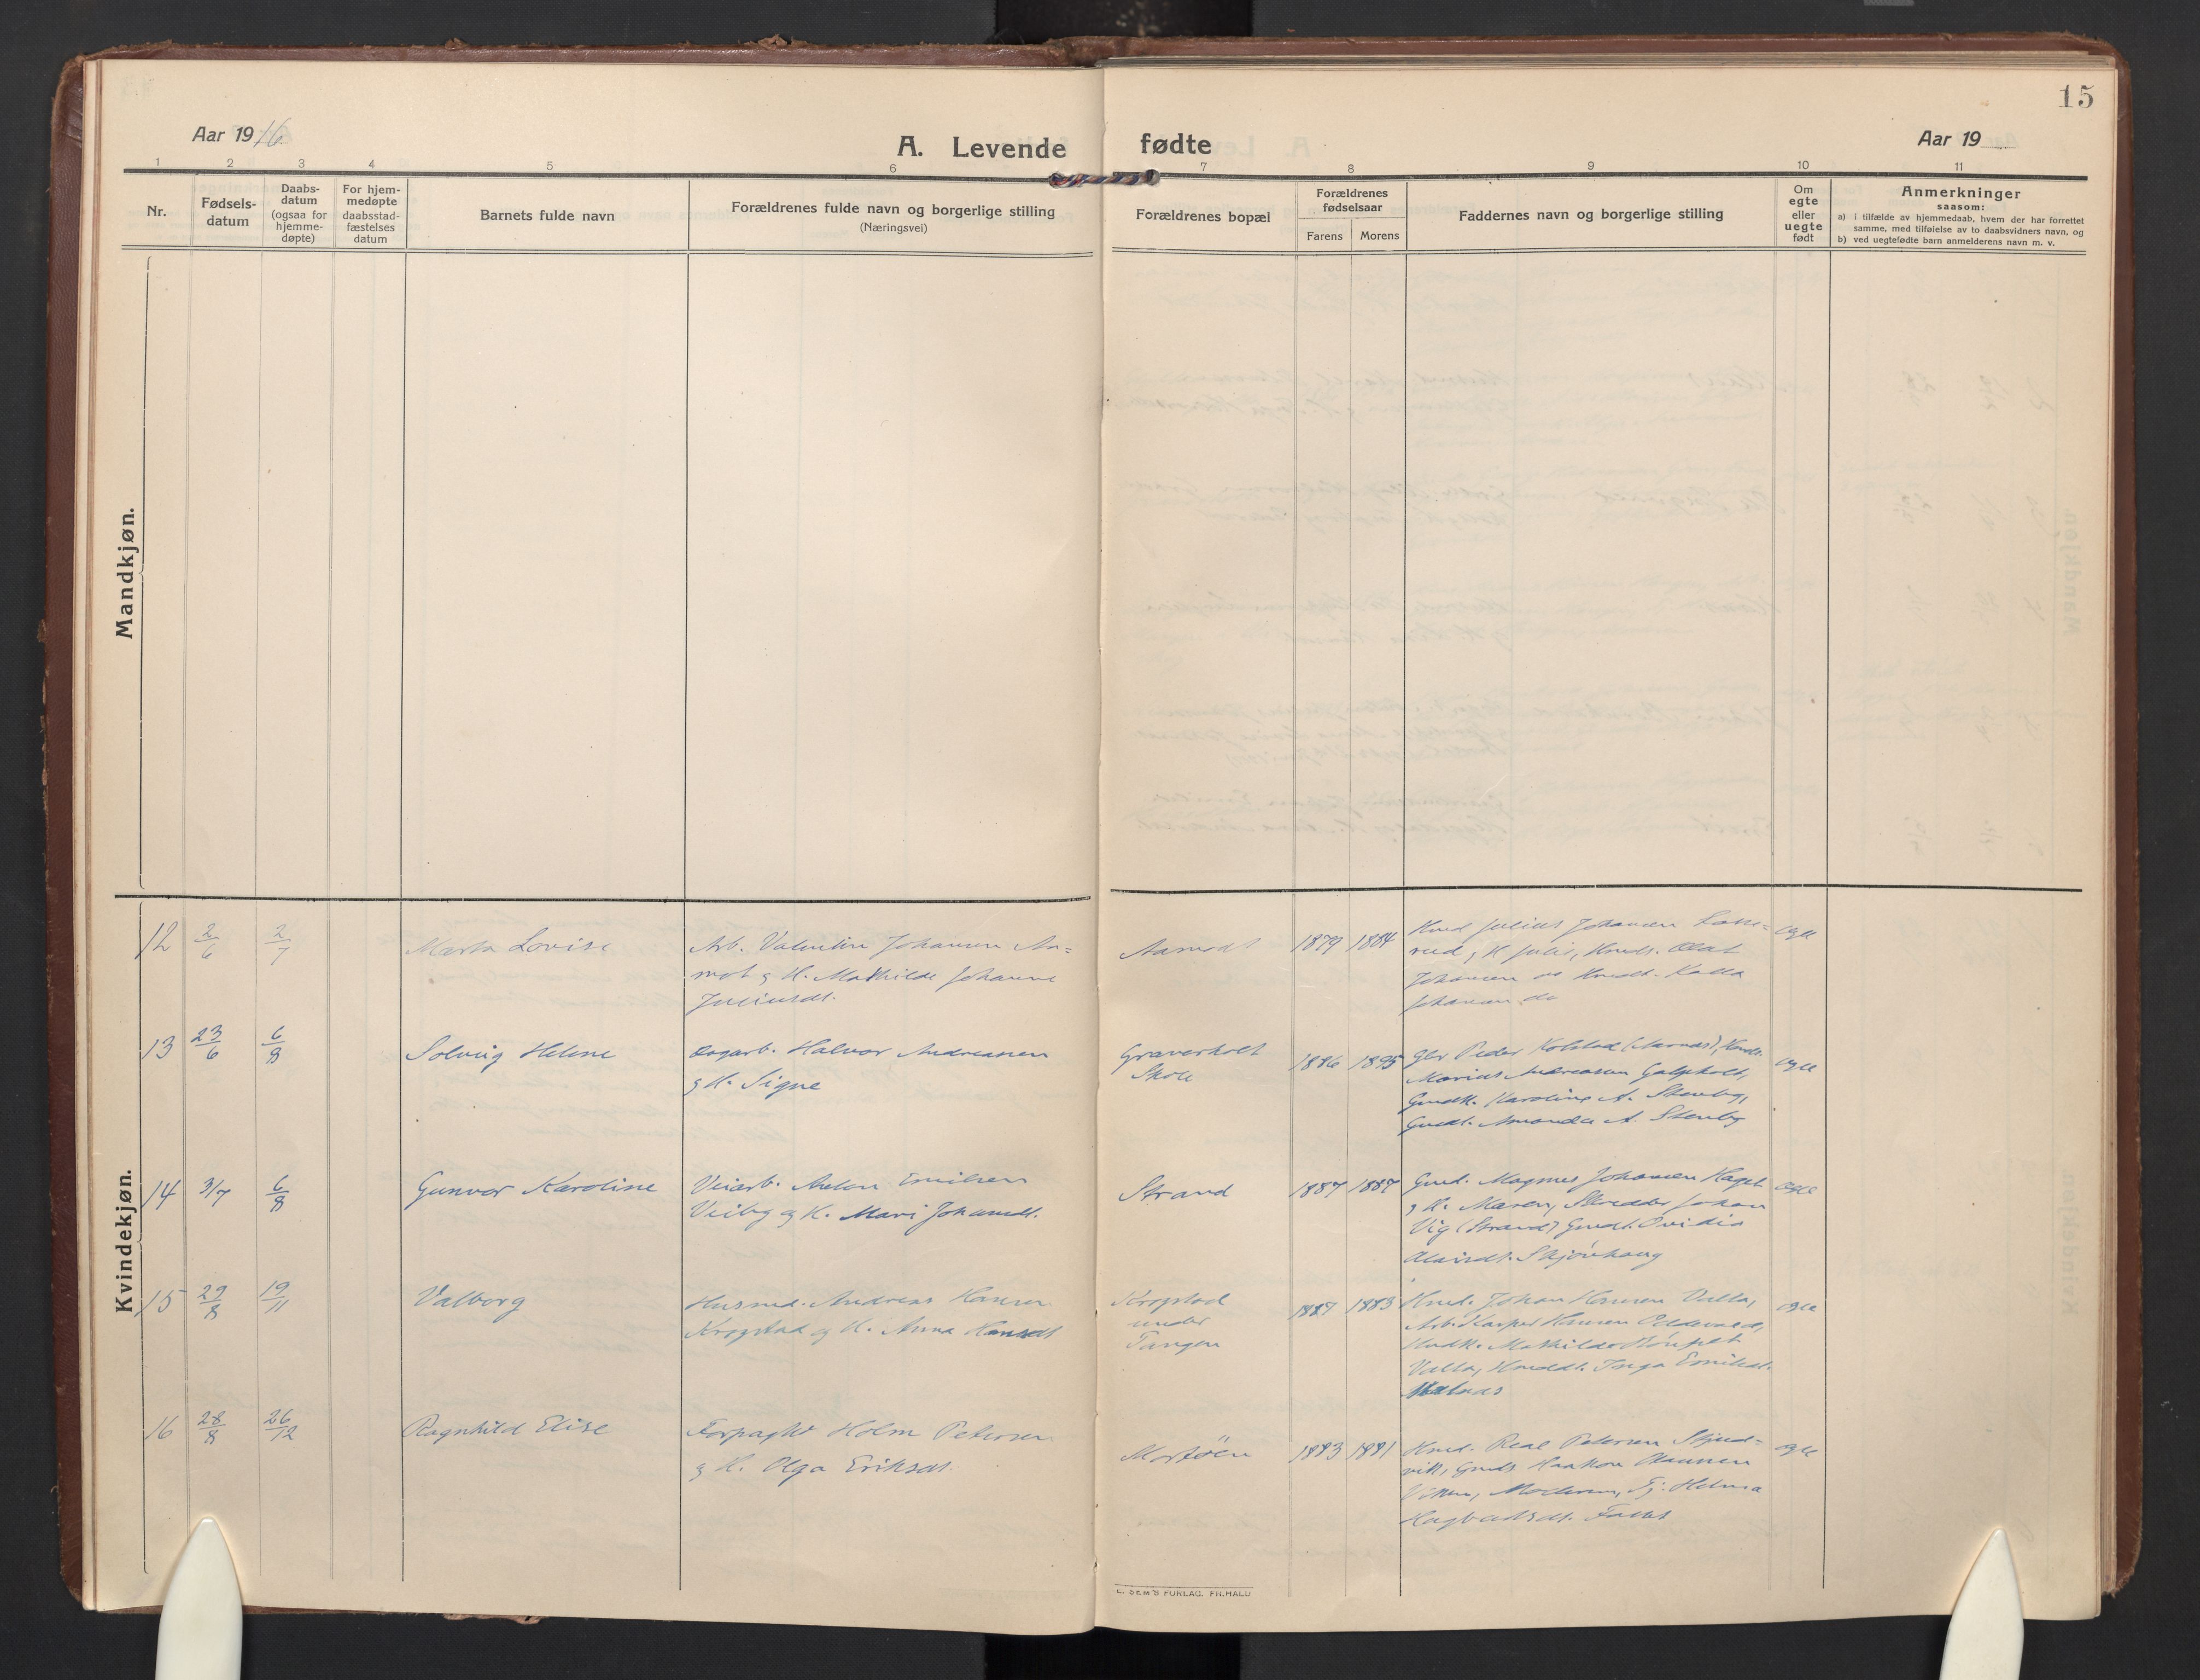 15
Aar 1916
A. Levende fødte
Aar 19
1 2 3 4 5 6 7 8 9 10 11
Nr.
Fødsels-
datum
Daabs-
datum
(ogsaa for
hjemme-
døpte)
For hjem-
medøpte
daabsstad-
fæstelses
datum
Barnets fulde navn
Forældrenes fulde navn og borgerlige stilling
(Næringsvei)
Forældrenes bopæl
Forældrenes
fødselsaar
Farens Morens
Faddernes navn og borgerlige stilling
Om
egte
eller
uegte
født
Anmerkninger
saasom:
a) i tilfælde av hjemmedaab, hvem der har forrettet
samme, med tilføielse av to daabsvidners navn, og
b) ved uegtefødte barn anmelderens navn m. v.
Mandkjøn.
Kvindekjøn.
12 2/6 2/7 Marta Lovise
Arb. Valentin Johansen Aa=
mot g H. Mathilde Johanne
Juliusdt.
1879 1884
Julius Johansen
rud, H. Julie, Olaf
Johansen
Johansen do
egte
13 23/6 6/8 Solveig Helene
Halvor Andreassen
g H. Signe
Graverholt
Skole
1886 1895
Peder Kolstad
Marius Andreassen
Karoline A. Stenby,
Amanda A. Stenby
egte
14 3/7 6/8 Gunvor Karoline
Veiarb. Anton Emilsen
Veiby g H. Mari Johansdt.
Strand
1887 1887
Gmd. Magnus Johansen
g H. Maren, Skredder Johan
Vig (Strand) Gmdt. Ovidia
Skjönhaug
egte
15 29/8 19/11 Valborg
Husmd. Andreas Hansen
Krogstad og H. Anna Hansdt
Krogstad
under
Tangen
1887 1883
Johan Hansen Valla,
Arb. Kasper Hansen
Mathilde
Valla, Inga Emilsdt.
egte
16 28/8 26/12 Ragnhild Elise
Forpagter Holm Petersen
g H. Olga Eriksdt.
1883 1881
Petersen Skjud=
vik, Haakon
Viken, Moderen, Tj. Helma
Hagbartsdt.
egte
E. SEM'S FORLAG. FR.HALD